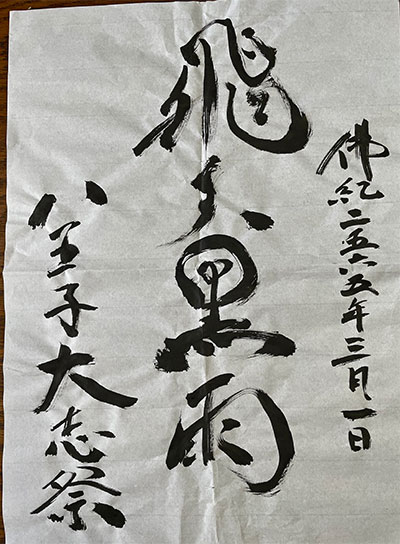 佛紀二五六五年三月一日
飛 黒雨
八王子大志祭